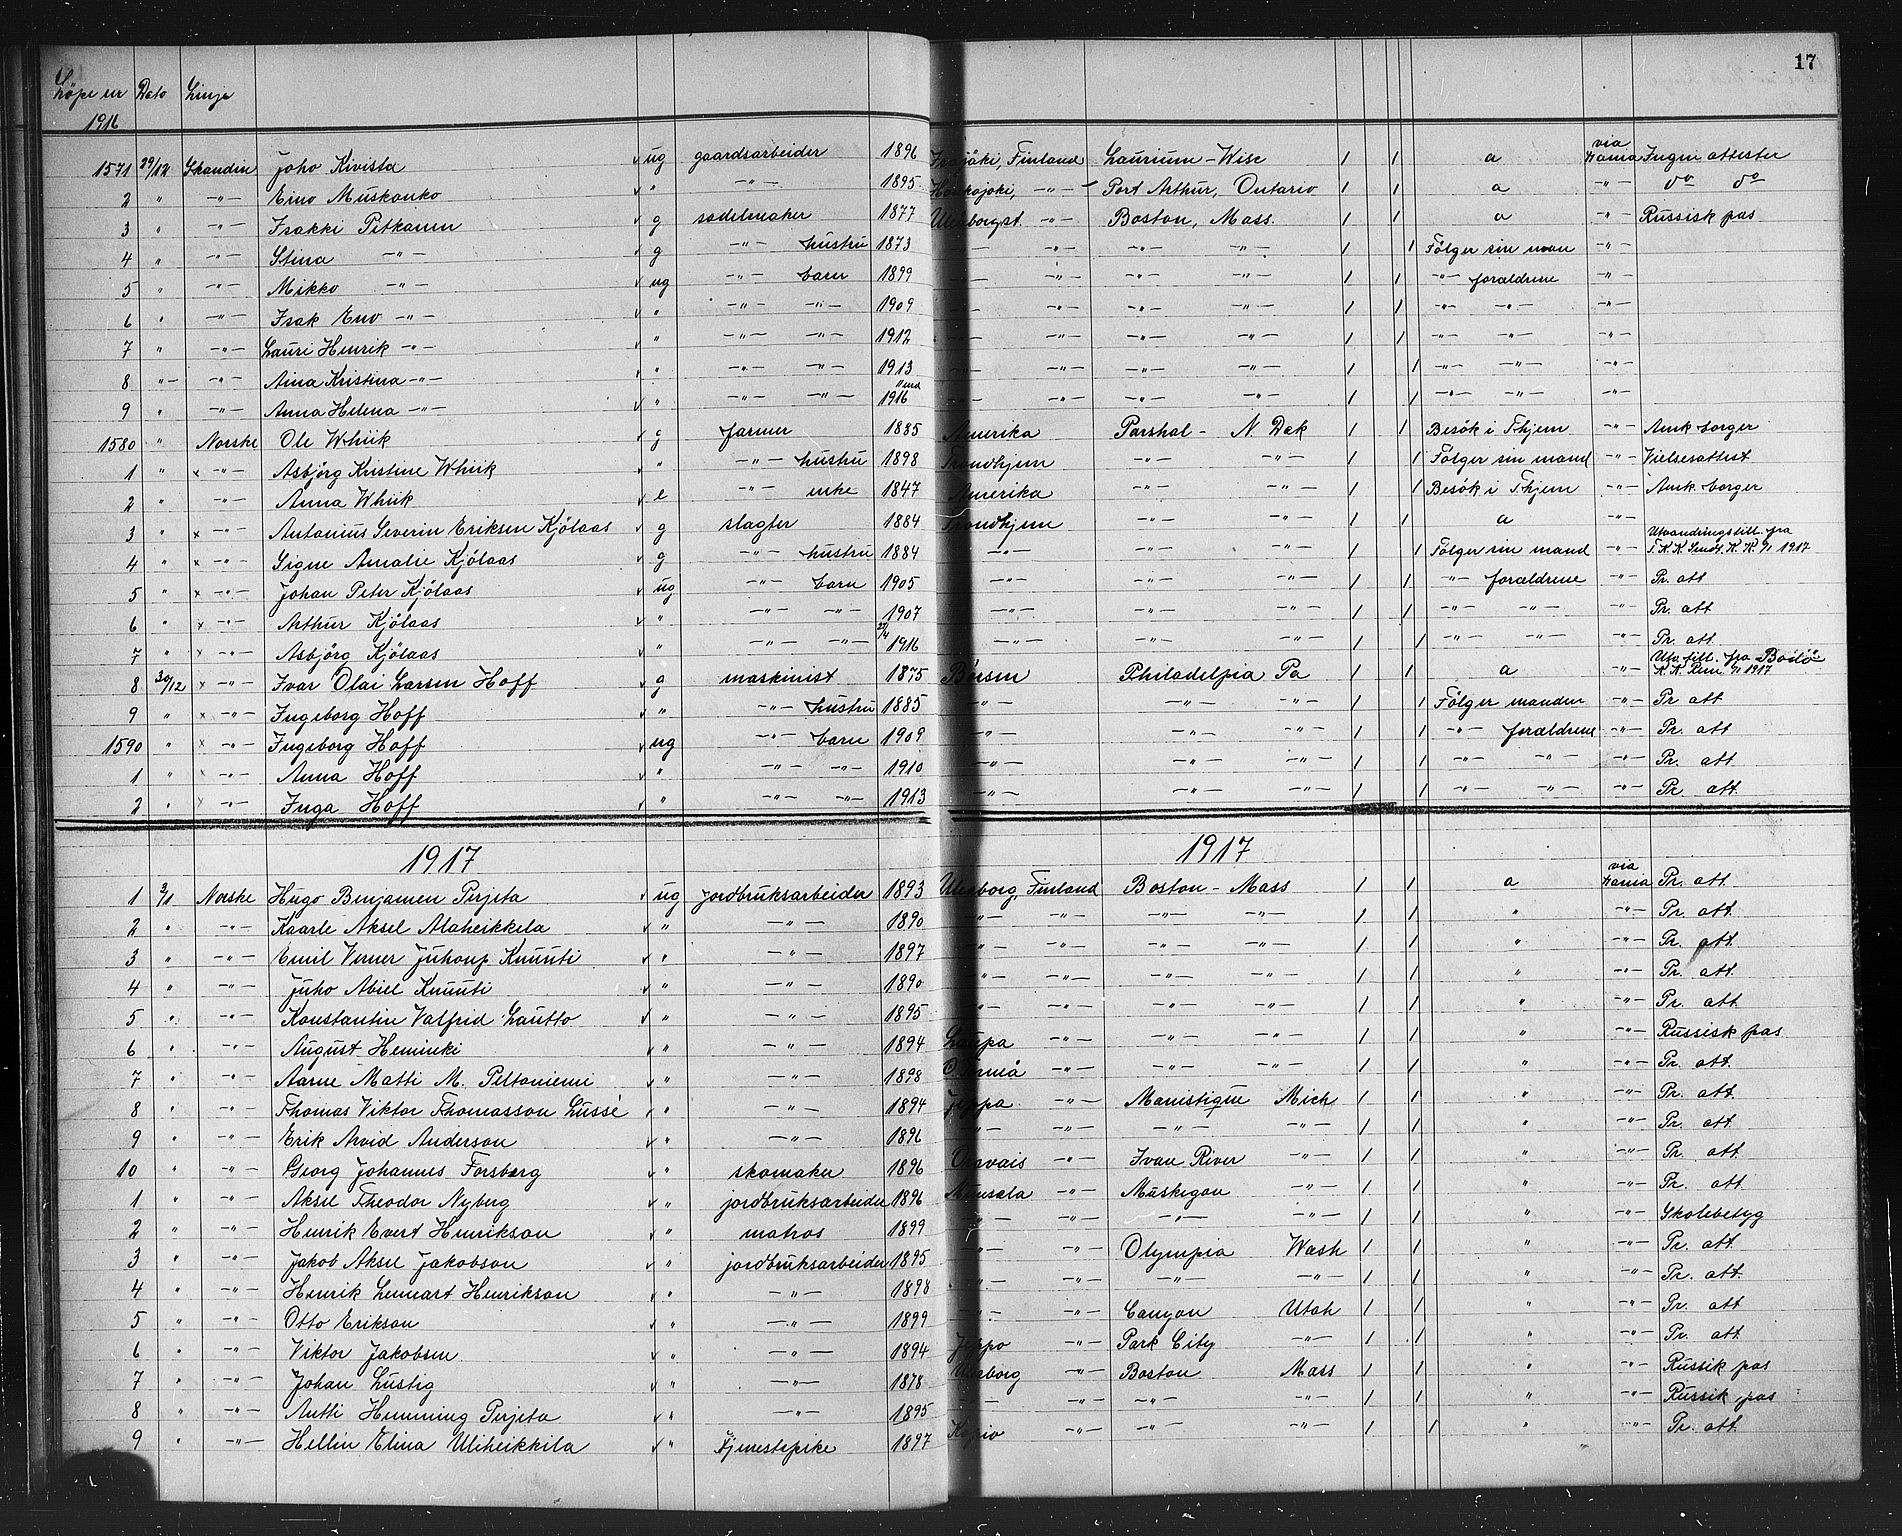 17
Löpe nr Dato Linje
1916
1571 29/12 Skandin Joho Kivista v ug gaardsarbeider 1896 Finland Laurium - Wisc 1 1 a via Hania Ingen attester
2 " -"- Eino Muskanko v " -"- 1895 -"- Port Arthur, Ontario 1 1 a -"- do do
3 " -"- Isakki Pitkanen v g sadelmaker 1877 Uleaborgst. -"- Boston, Mass. 1 1 a -"- Russisk pas
4 " -"- Stina -"- v g -"- hustru 1873 -"- -"- -"- -"- 1 1 Fölger sin man -"-
5 " -"- Mikko -"- v ug -"- barn 1899 -"- -"- -"- -"- 1 1 -"- forældrene -"-
6 " -"- Isak Eno -"- v " -"- -"- 1909 -"- -"- -"- -"- 1 1 -"- -"- -"-
7 " -"- Lauri Henrik -"- v " -"- -"- 1912 -"- -"- -"- -"- 1 1 -"- -"- -"-
8 " -"- Aina Kristina -"- v " -"- -"- 1913 -"- -"- -"- -"- 1 1 -"- -"- -"-
9 " -"- Anna Helena -"- v " -"- -"- 11 md 1916 -"- -"- -"- -"- 1 1 -"- -"- -"-
1580 " Norske Ole Whiik v g farmer 1885 Amerika Parshal - N. Dak 1 1 Besök i Thjem -"- Amk borger
1 " x -"- Asbjörg Kristine Whiik v " -"- hustru 1898 Trondhjem -"- -"- 1 1 Fölger sin mand -"- Vielsesattest
2 " -"- Anna Whiik v e -"- enke 1847 Amerika -"- -"- 1 1 Besök i Thjem -"- Amk. borger
3 " x -"- Antonius Severin Eriksen Kjölaas v g slagter 1884 Trondhjem -"- -"- 1 1 a -"-
4 " x -"- Signe Amalie Kjölaas v g -"- hustru 1884 -"- -"- -"- 1 1 Fölger sin mand -"- Utvandringstill. fra 1917
5 " x -"- Johan Peter Kjölaas v ug -"- barn 1905 -"- -"- -"- 1 1 -"- forældrene -"- Pr. att
6 " x -"- Arthur Kjölaas v " -"- -"- 1907 -"- -"- -"- 1 1 -"- -"- -"- Pr. att
7 " x -"- Asbjörg Kjölaas v " -"- -"- 27/4 1916 -"- -"- -"- 1 1 -"- -"- -"- Pr. att.
8 30/12 x -"- Ivar Olai Larsen Hoff v g maskinist 1875 Börsen Philadelpia Pa 1 1 a -"- Utv. till. fra 1917
9 " x -"- Ingeborg Hoff v " -"- hustru 1885 -"- -"- -"- 1 1 Fölger manden -"- Pr att
1590 " x -"- Ingeborg Hoff v ug -"- barn 1909 -"- -"- -"- 1 1 -"- forældrene -"- Pr. att
1 " x -"- Anna Hoff v " -"- -"- 1910 -"- -"- -"- 1 1 -"- -"- -"- Pr. att
2 " x -"- Inga Hoff v " -"- -"- 1913 -"- -"- -"- 1 1 -"- -"- -"- Pr. att.
1917 1917
1 3/1 Norske Hugo Benjamen Perjeta v ug jordbruksarbeider 1893 Uleaborg, Finland Boston - Mass 1 1 a via Hania Pr. att.
2 " -"- Kaarle Aksel Alaheikkela v " -"- 1890 -"- -"- -"- -"- 1 1 " -"- Pr. att.
3 " -"- Emil Verner Juhonp Knuuti v " -"- 1897 -"- -"- -"- -"- 1 1 " -"- Pr. att.
4 " -"- Juho Abiel Knuuti v " -"- 1890 -"- -"- -"- -"- 1 1 " -"- Pr. att.
5 " -"- Konstantin Valfrid Lautto v " -"- 1895 -"- -"- -"- -"- 1 1 " -"- Pr. att.
6 " -"- August Heminki v " -"- 1894 Laupa -"- -"- -"- 1 1 " -"- Russisk pas
7 " -"- Aarne Matti M. Peltoniemi v " -"- 1898 -"- -"- -"- 1 1 " -"- Pr. att.
8 " -"- Thomas Viktor Thomasson Lussé v " -"- 1894 Jeppa -"- Manistique Mich 1 1 " -"- Pr. att.
9 " -"- Erik Arvid Anderson v " -"- 1896 -"- -"- -"- -"- 1 1 " -"- Pr. att.
10 " -"- Georg Johannes Forsberg v " skomaker 1896 Oravais -"- Ivan River -"- 1 1 " -"- Pr. att.
1 " -"- Aksel Theodor Nyberg v " jordbruksarbeider 1896 Munsala -"- Muskegon -"- 1 1 " -"- Pr. att
2 " -"- Henrik Evert Henrikson v " matros 1899 -"- -"- -"- -"- 1 1 " -"- Skolebetyg
3 " -"- Jakob Aksel Jakobson v " jordbruksarbeider 1895 -"- -"- Olympia Wash 1 1 " -"- Pr. att.
4 " -"- Henrik Lennart Henrikson v " -"- 1898 -"- -"- -"- -"- 1 1 " -"- Pr. att.
5 " -"- Otto Erikson v " -"- 1899 -"- -"- Canyon Utah 1 1 " -"- Pr. att
6 " -"- Viktor Jakobsen v " -"- 1894 Jeppo -"- Park City -"- 1 1 " -"- Pr. att
7 " -"- Johan Lustig v " -"- 1878 Uleaborg -"- Boston Mass 1 1 " -"- Russik pas
8 " -"- Antti Hemming Perjeta v " -"- 1895 -"- -"- -"- -"- 1 1 " -"- Russik pas
9 " -"- Hellin Elina Uliheikkila v " Tjenestepike 1897 -"- -"- -"- 1 1 " -"- Pr. att.